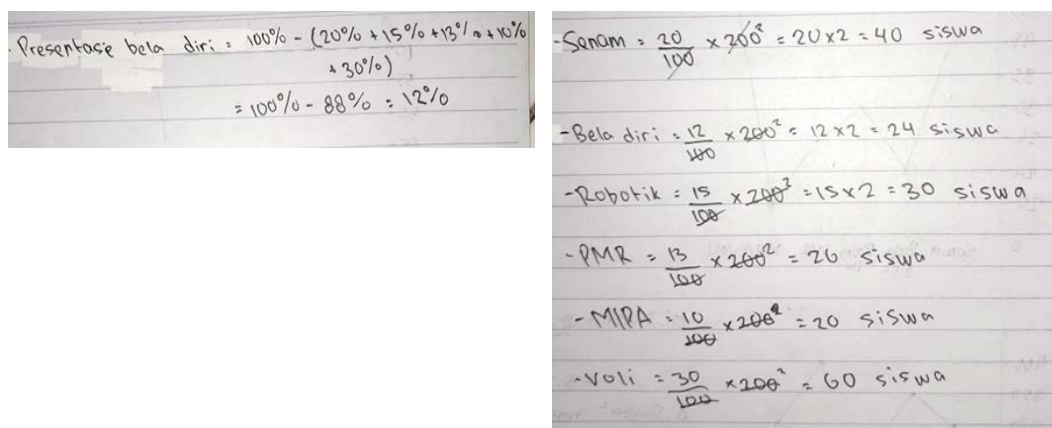 Presentase bela diri = 100% - (20% + 15% + 13% + 10%
+ 30%)
= 100% - 88% = 12%
- Senam = 20/100 x 200² = 20x2 = 40 siswa
- Bela diri = 12/100 x 200² = 12x2 = 24 siswa
- Robotik = 15/100 x 200² = 15x2 = 30 siswa
- PMR = 13/100 x 200² = 26 siswa
- MIPA = 10/100 x 200² = 20 siswa
- Voli = 30/100 x 200² = 60 siswa